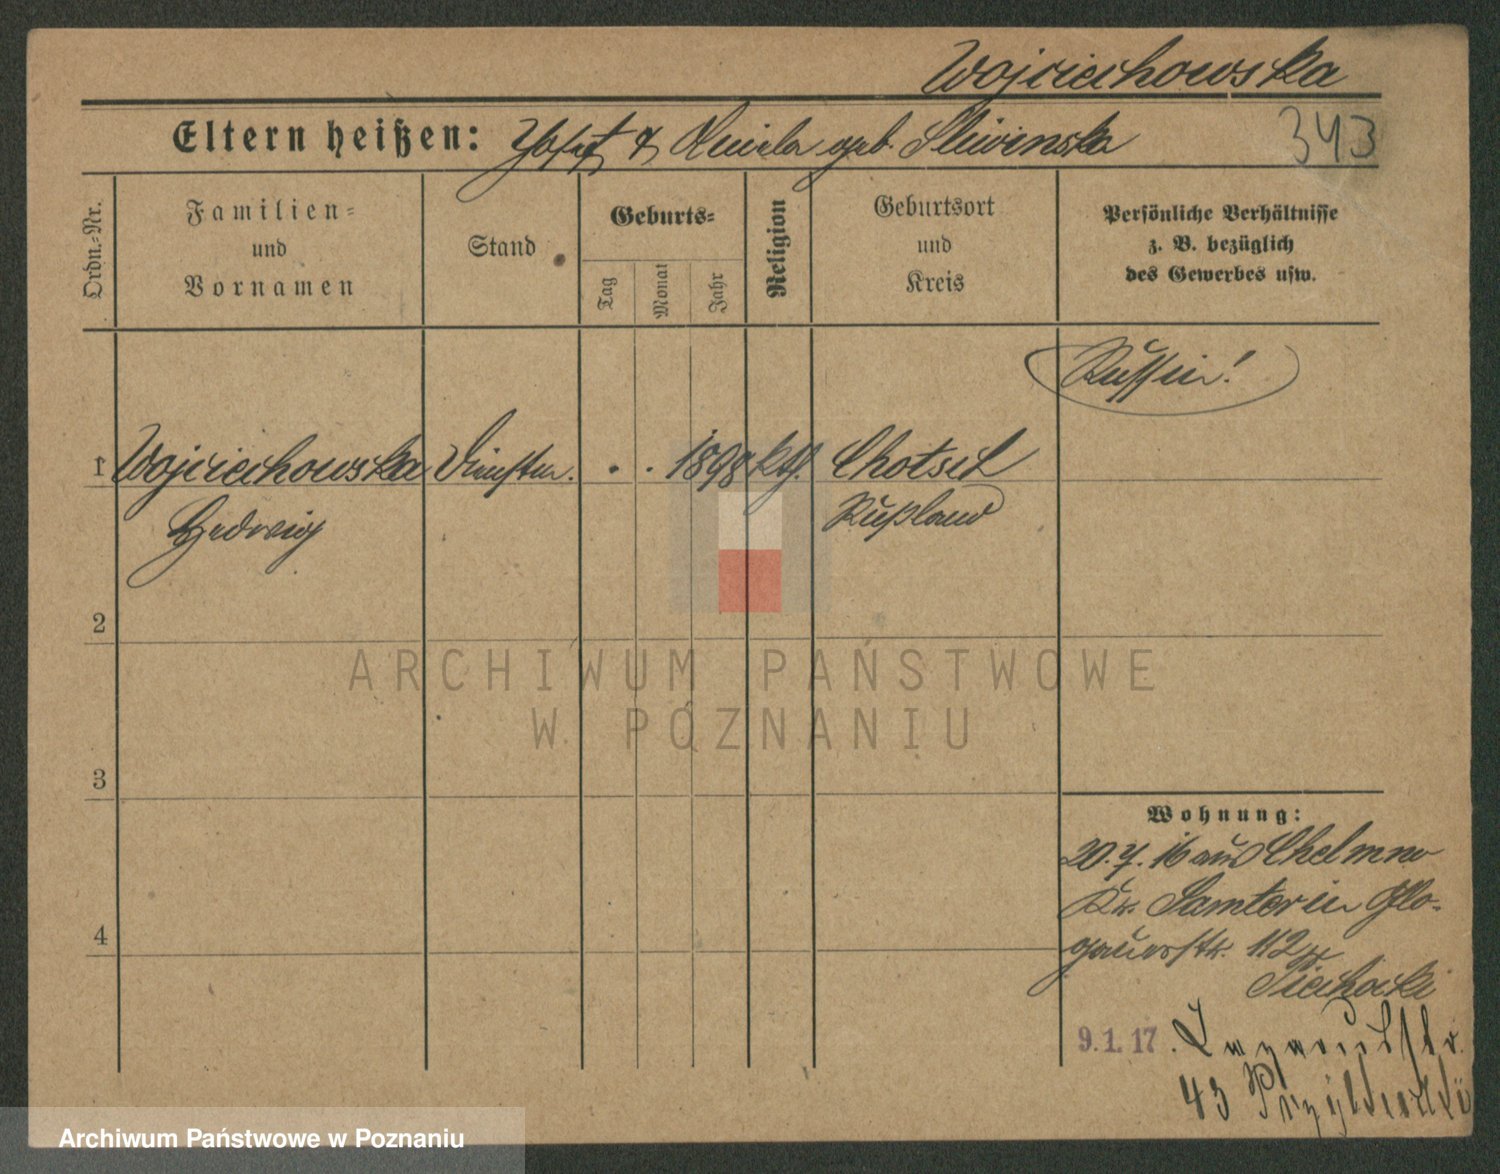 Wojciechowska
Eltern heißen: Josef & Aniela geb. Sliwinska
343
Ordn.-Nr.
Familien-
und
Vornamen
Stand
Geburts-
Tag
Monat
Jahr
Religion
Geburtsort
und
Kreis
Persönliche Verhältnisse
z. B. bezüglich
des Gewerbes usw.
Russin!
1 Wojciechowska . . 1898 kth. Chotsch
Hedwig Rußland
2
3
4
Wohnung:
20.7.16 aus Chelmno
Kr. Samter in Glo-
gauerstr. 112
Piechocki
9.1.17. Lazarusstr.
43
ARCHIWUM PAŃSTWOWE
W POZNANIU
Archiwum Państwowe w Poznaniu